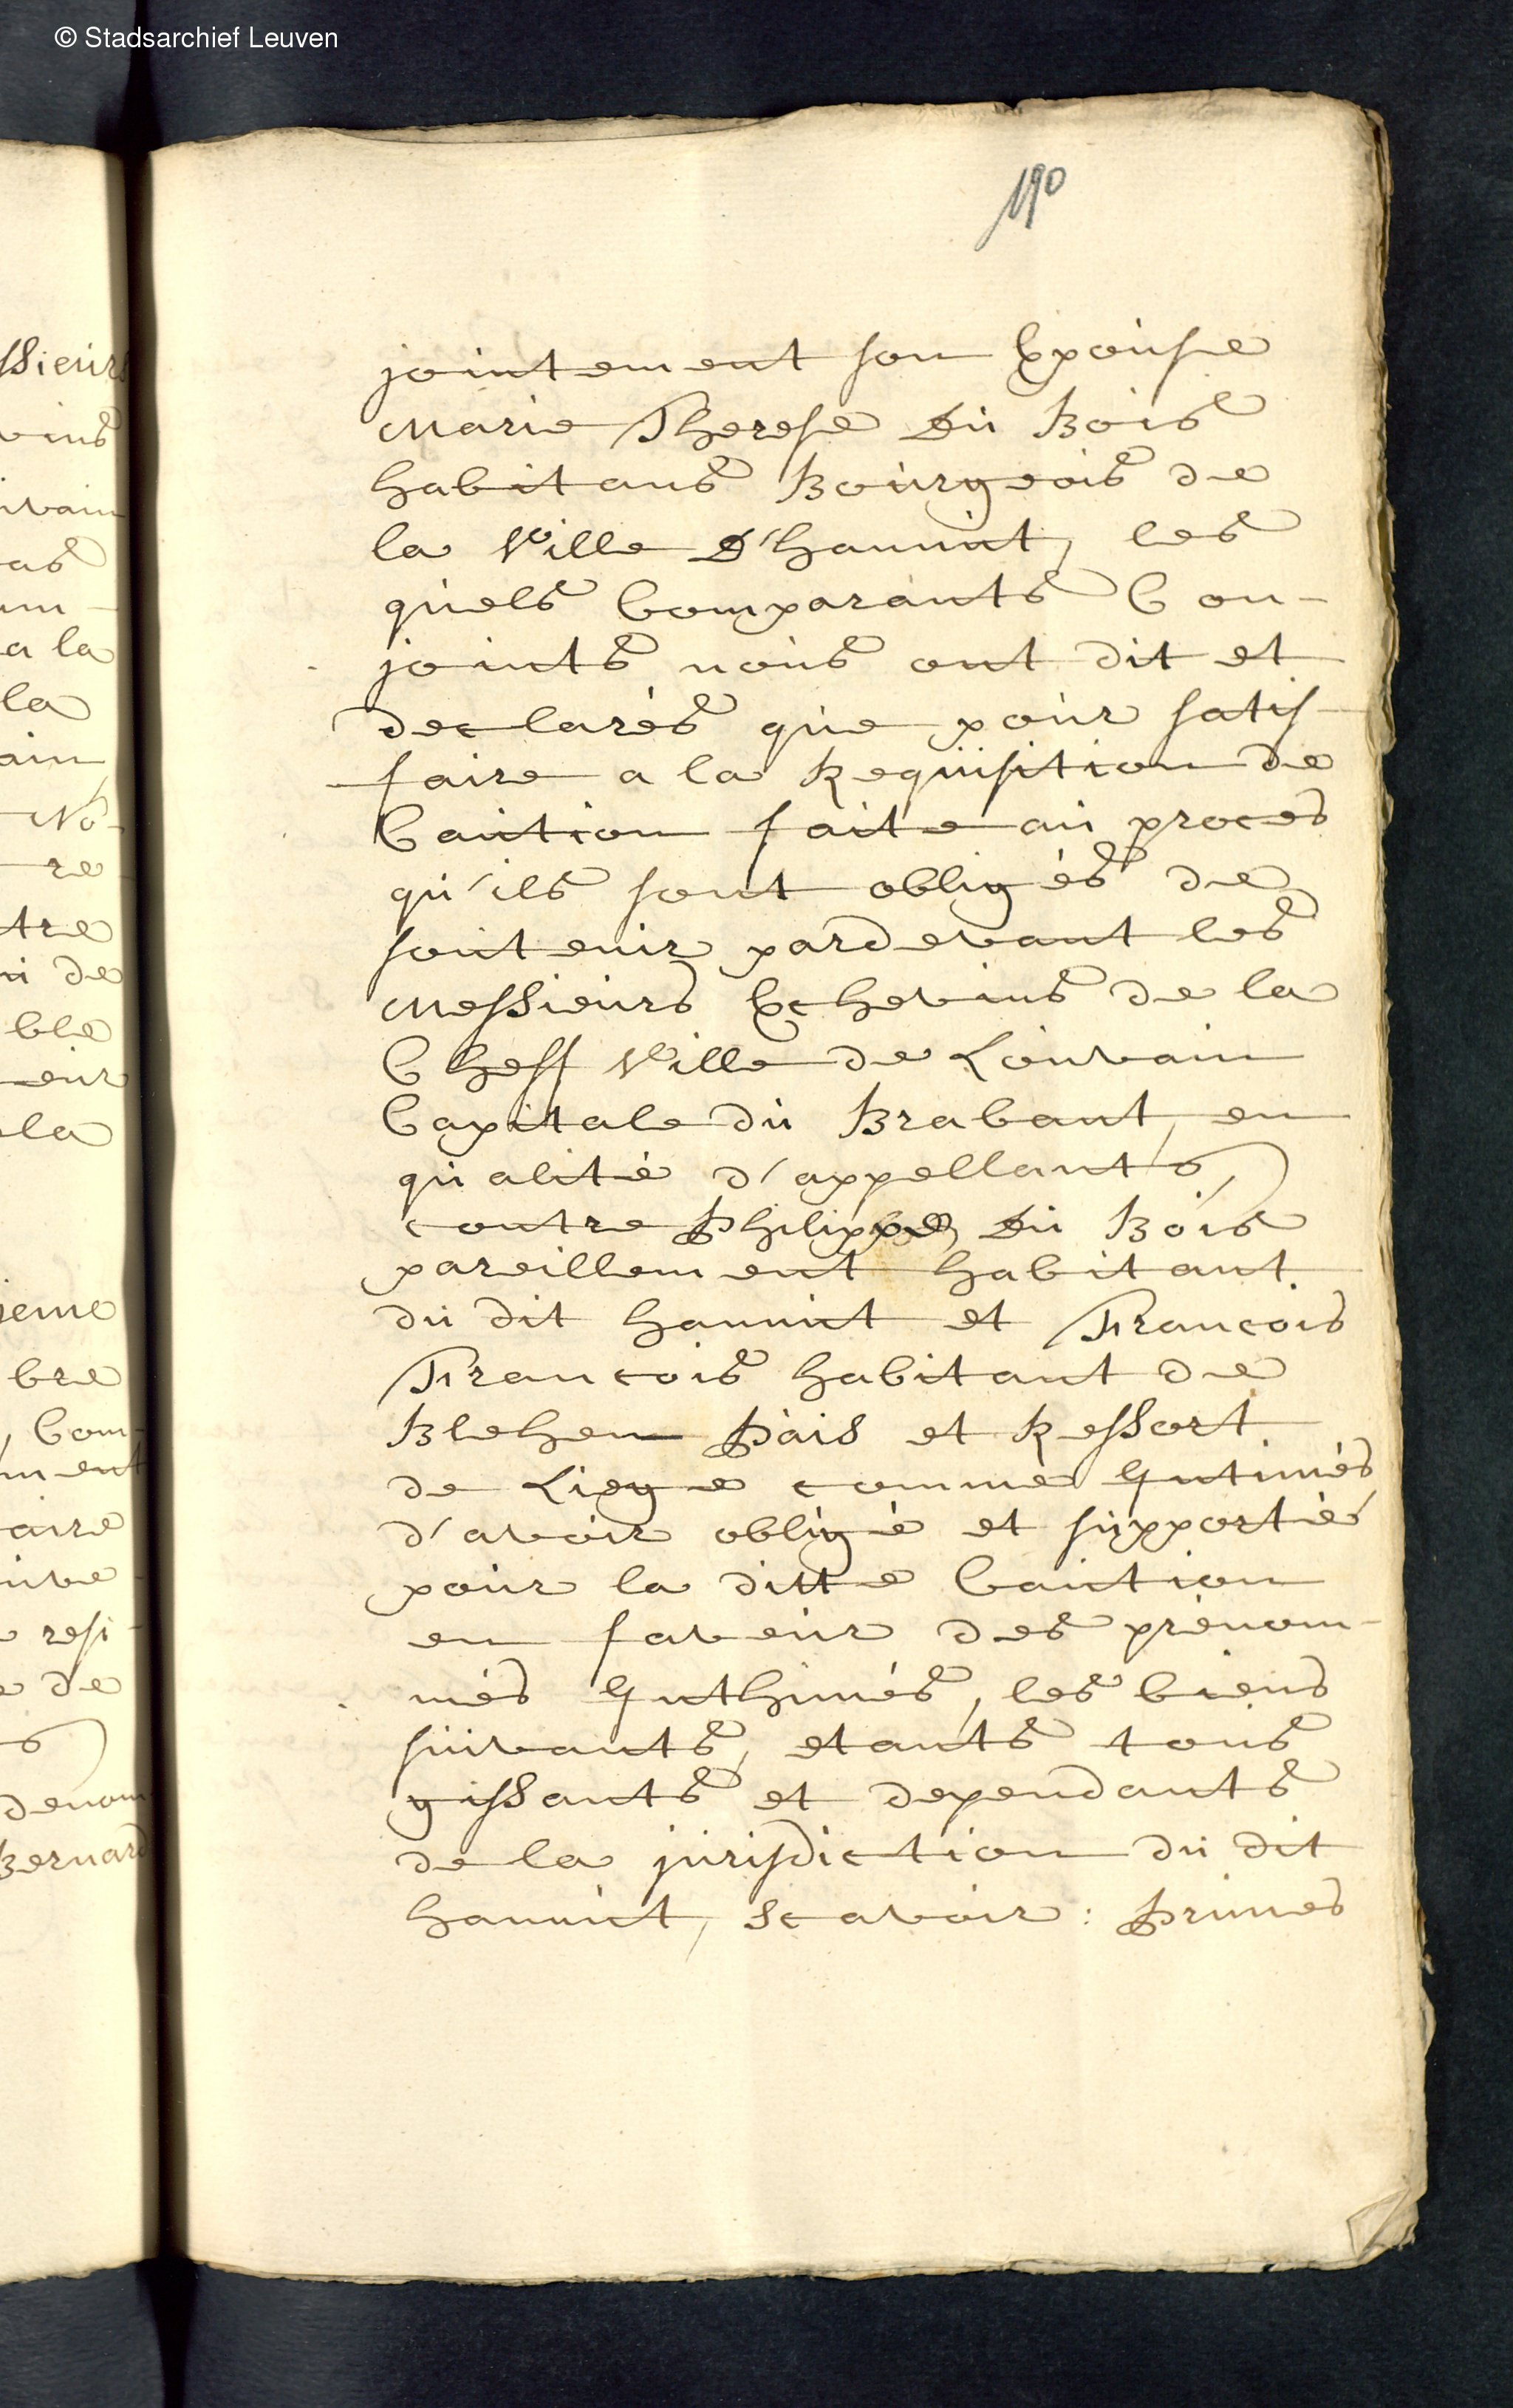 © Stadsarchief Leuven
190
jointement son Epouse
Marie Therese Du Bois
habitans Bourgeois de
la Ville D'hannut, les
quels Comparants Con-
joints nous ont dit et
declarés que pour satis-
faire a la Requisition de
Caution faite au procés
qu'ils sont obligés de
soutenir pardevant les
Messieurs Echevins de la
Cheff Ville de Louvain
Capitale du Brabant, en
qualité d'appellants,
contre Philippe Du Bois
pareillement habitant
du dit hannut et Francois
Francois habitant de
Blehen Païs et Ressort
de Liege comme Intimés
d'avoir obligé et supporté
pour la ditte Caution
en faveur des prénom-
més Inthimés, les biens
suivants, etants tous
gissants et dependants
de la jurisdiction du dit
hannut, scavoir: Primes
ssieurs
vins
ivain
as
um-
a la
la
ain,
No-
re-
tre
ui de
ble
eur
la
ieme
bre
, Com-
ment
aire
uve-
resi-
de
denom
Bernard